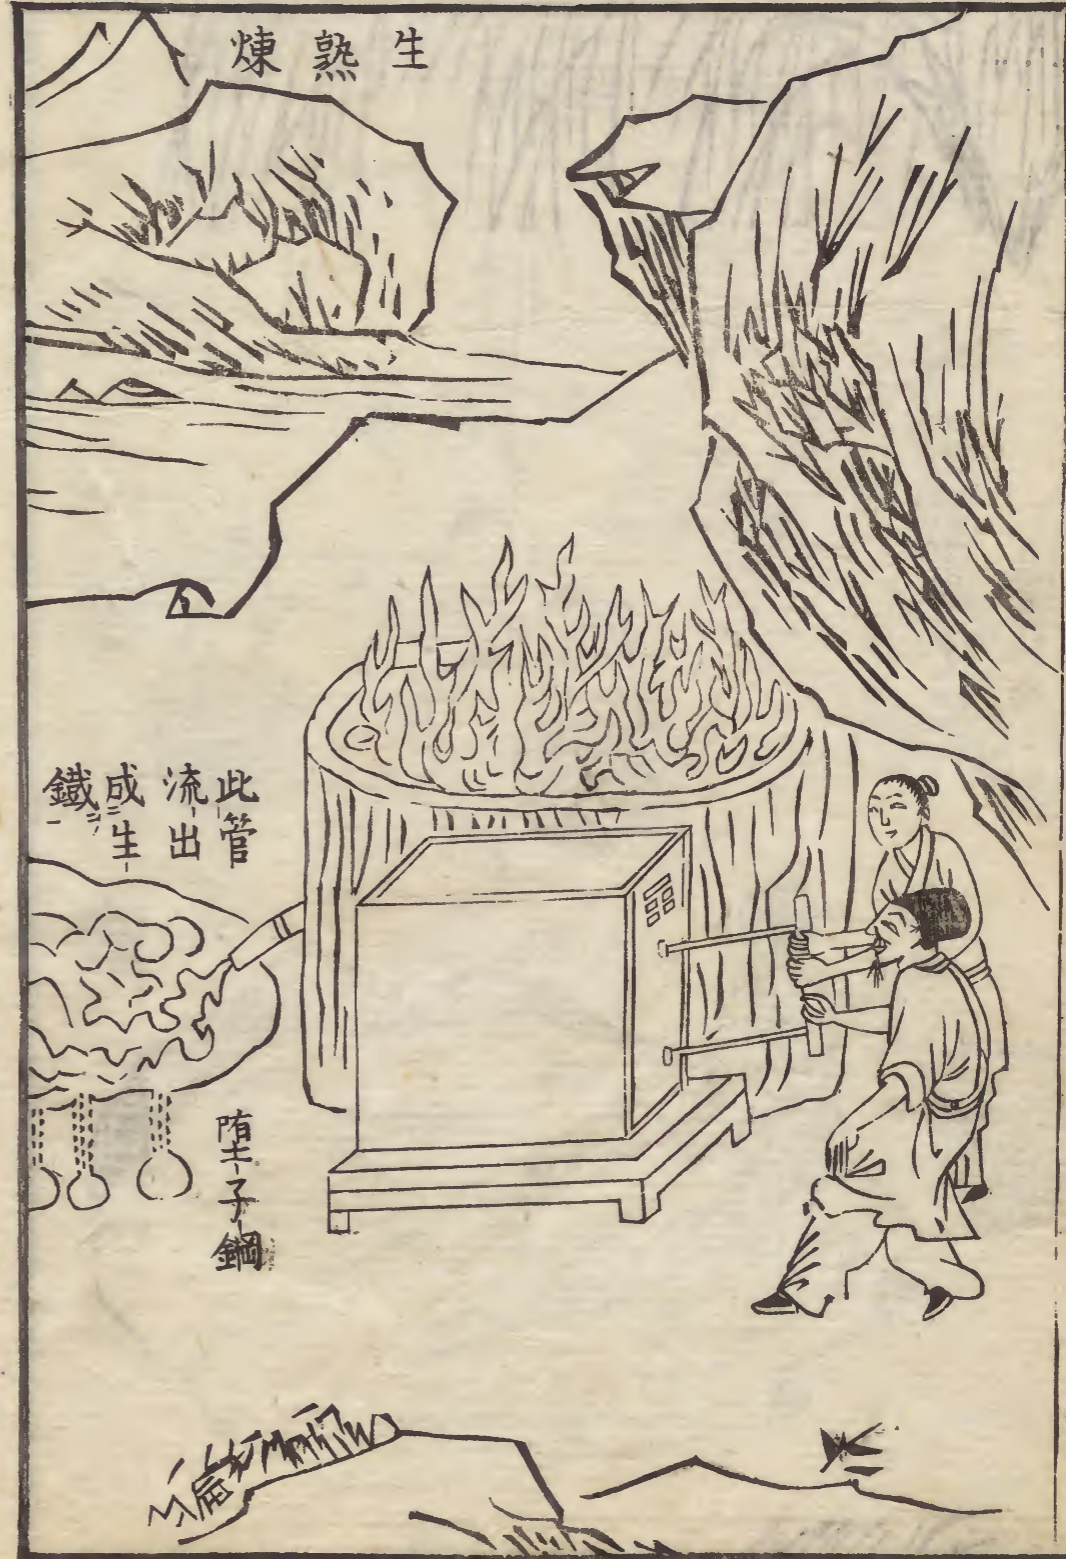 生熟煉
此管
流出
成生
鐵
堕子鋼